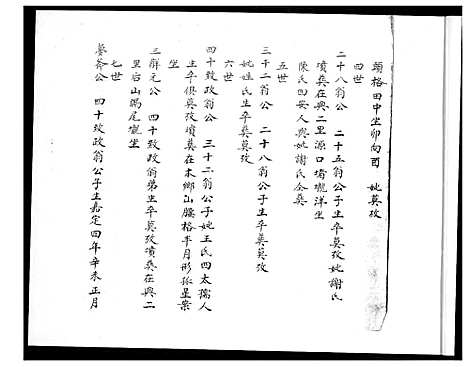 頭格田中坐卯向酉　妣莫攷
四世
二十八翁公　二十五翁公子生卒莫攷妣謝氏
墳葬在興二里源口壠洋坐
陳氏四安人與妣謝氏仝葬
五世
三十二翁公　二十八翁公子生卒葬莫攷
妣姓氏生卒葬莫攷
六世
四十致政翁公　三十二翁公子妣王氏四太孺人
生卒俱莫攷墳葬在本鄉山騰格半月形孤星案
坐
三辭元公　四十致政翁弟生卒莫攷墳葬在興二
里后山蝎尾壠坐
七世
慕齋公　四十致政翁公子生嘉定四年辛未正月